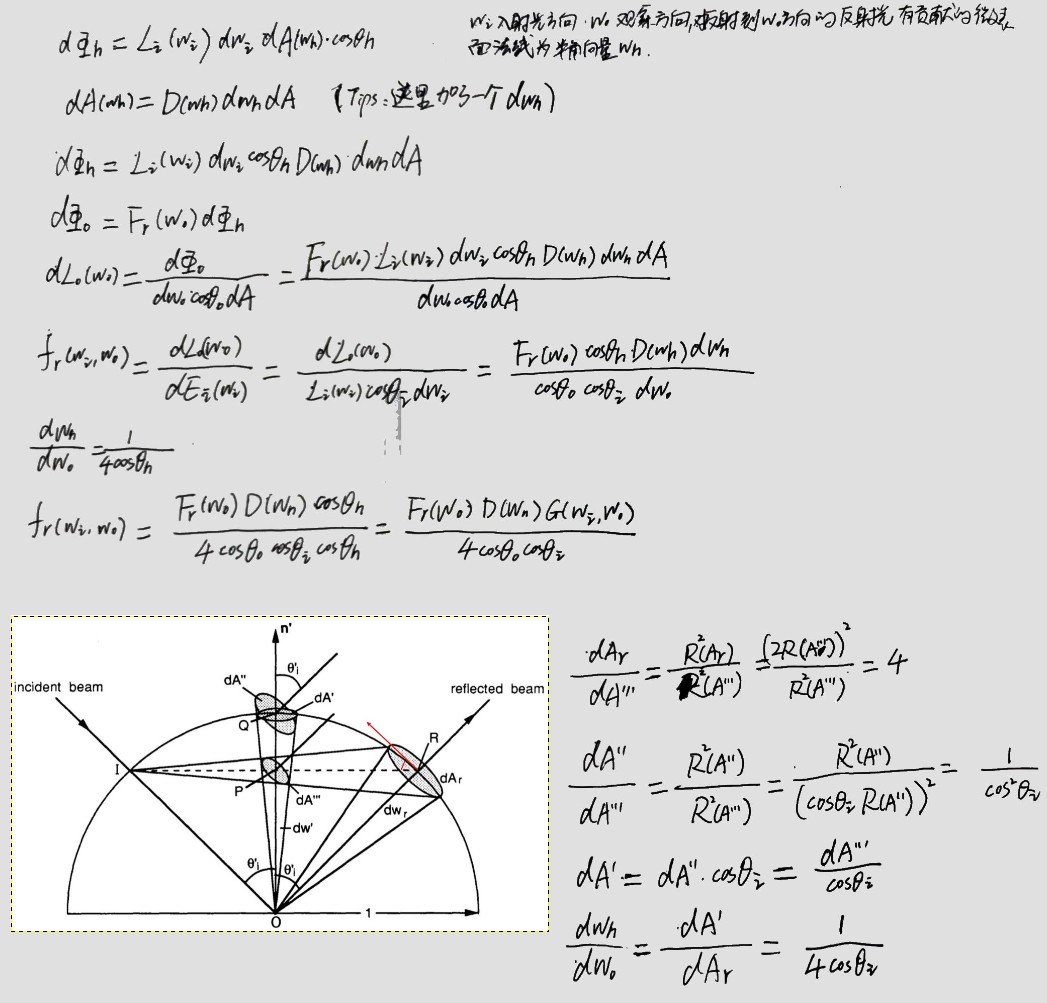 wᵢ入射光方向. w₀ 观察方向,对反射到w₀方向的反射光 有贡献的微表
面法线为 半角向量 wₕ.
dΦₕ = Lᵢ(wᵢ) dwᵢ dA(wₕ)·cosθₕ
dA(wₕ) = D(wₕ) dwₕ dA (Tips: 这里加了一个 dwₕ)
dΦₕ = Lᵢ(wᵢ) dwᵢ cosθₕ D(wₕ) dwₕ dA
dΦ₀ = Fᵣ(w₀) dΦₕ
dL₀(w₀) = dΦ₀ / (dw₀ cosθ₀ dA) = Fᵣ(w₀)·Lᵢ(wᵢ) dwᵢ cosθₕ D(wₕ) dwₕ dA / (dw₀ cosθ₀ dA)
fᵣ(wᵢ, w₀) = dL₀(w₀) / dEᵢ(wᵢ) = dL₀(w₀) / (Lᵢ(wᵢ) cosθᵢ dwᵢ) = Fᵣ(w₀) cosθₕ D(wₕ) dwₕ / (cosθ₀ cosθᵢ dw₀)
dwₕ / dw₀ = 1 / (4cosθₕ)
fᵣ(wᵢ, w₀) = Fᵣ(w₀) D(wₕ) cosθₕ / (4 cosθ₀ cosθᵢ cosθₕ) = Fᵣ(w₀) D(wₕ) G(wᵢ, w₀) / (4 cosθ₀ cosθᵢ)
n'
θ'ᵢ
incident beam
dA''
dA'
reflected beam
Q
R
I
P
dA'''
dAᵣ
dwᵣ
dw'
θ'ᵢ
θ'ᵢ
O
1
dAᵣ / dA''' = R²(Aᵣ) / R²(A''') = (2R(A'''))² / R²(A''') = 4
dA'' / dA''' = R²(A'') / R²(A''') = R²(A'') / (cosθᵢ R(A''))² = 1 / cos²θᵢ
dA' = dA''·cosθᵢ = dA''' / cosθᵢ
dwₕ / dw₀ = dA' / dAᵣ = 1 / (4cosθᵢ)